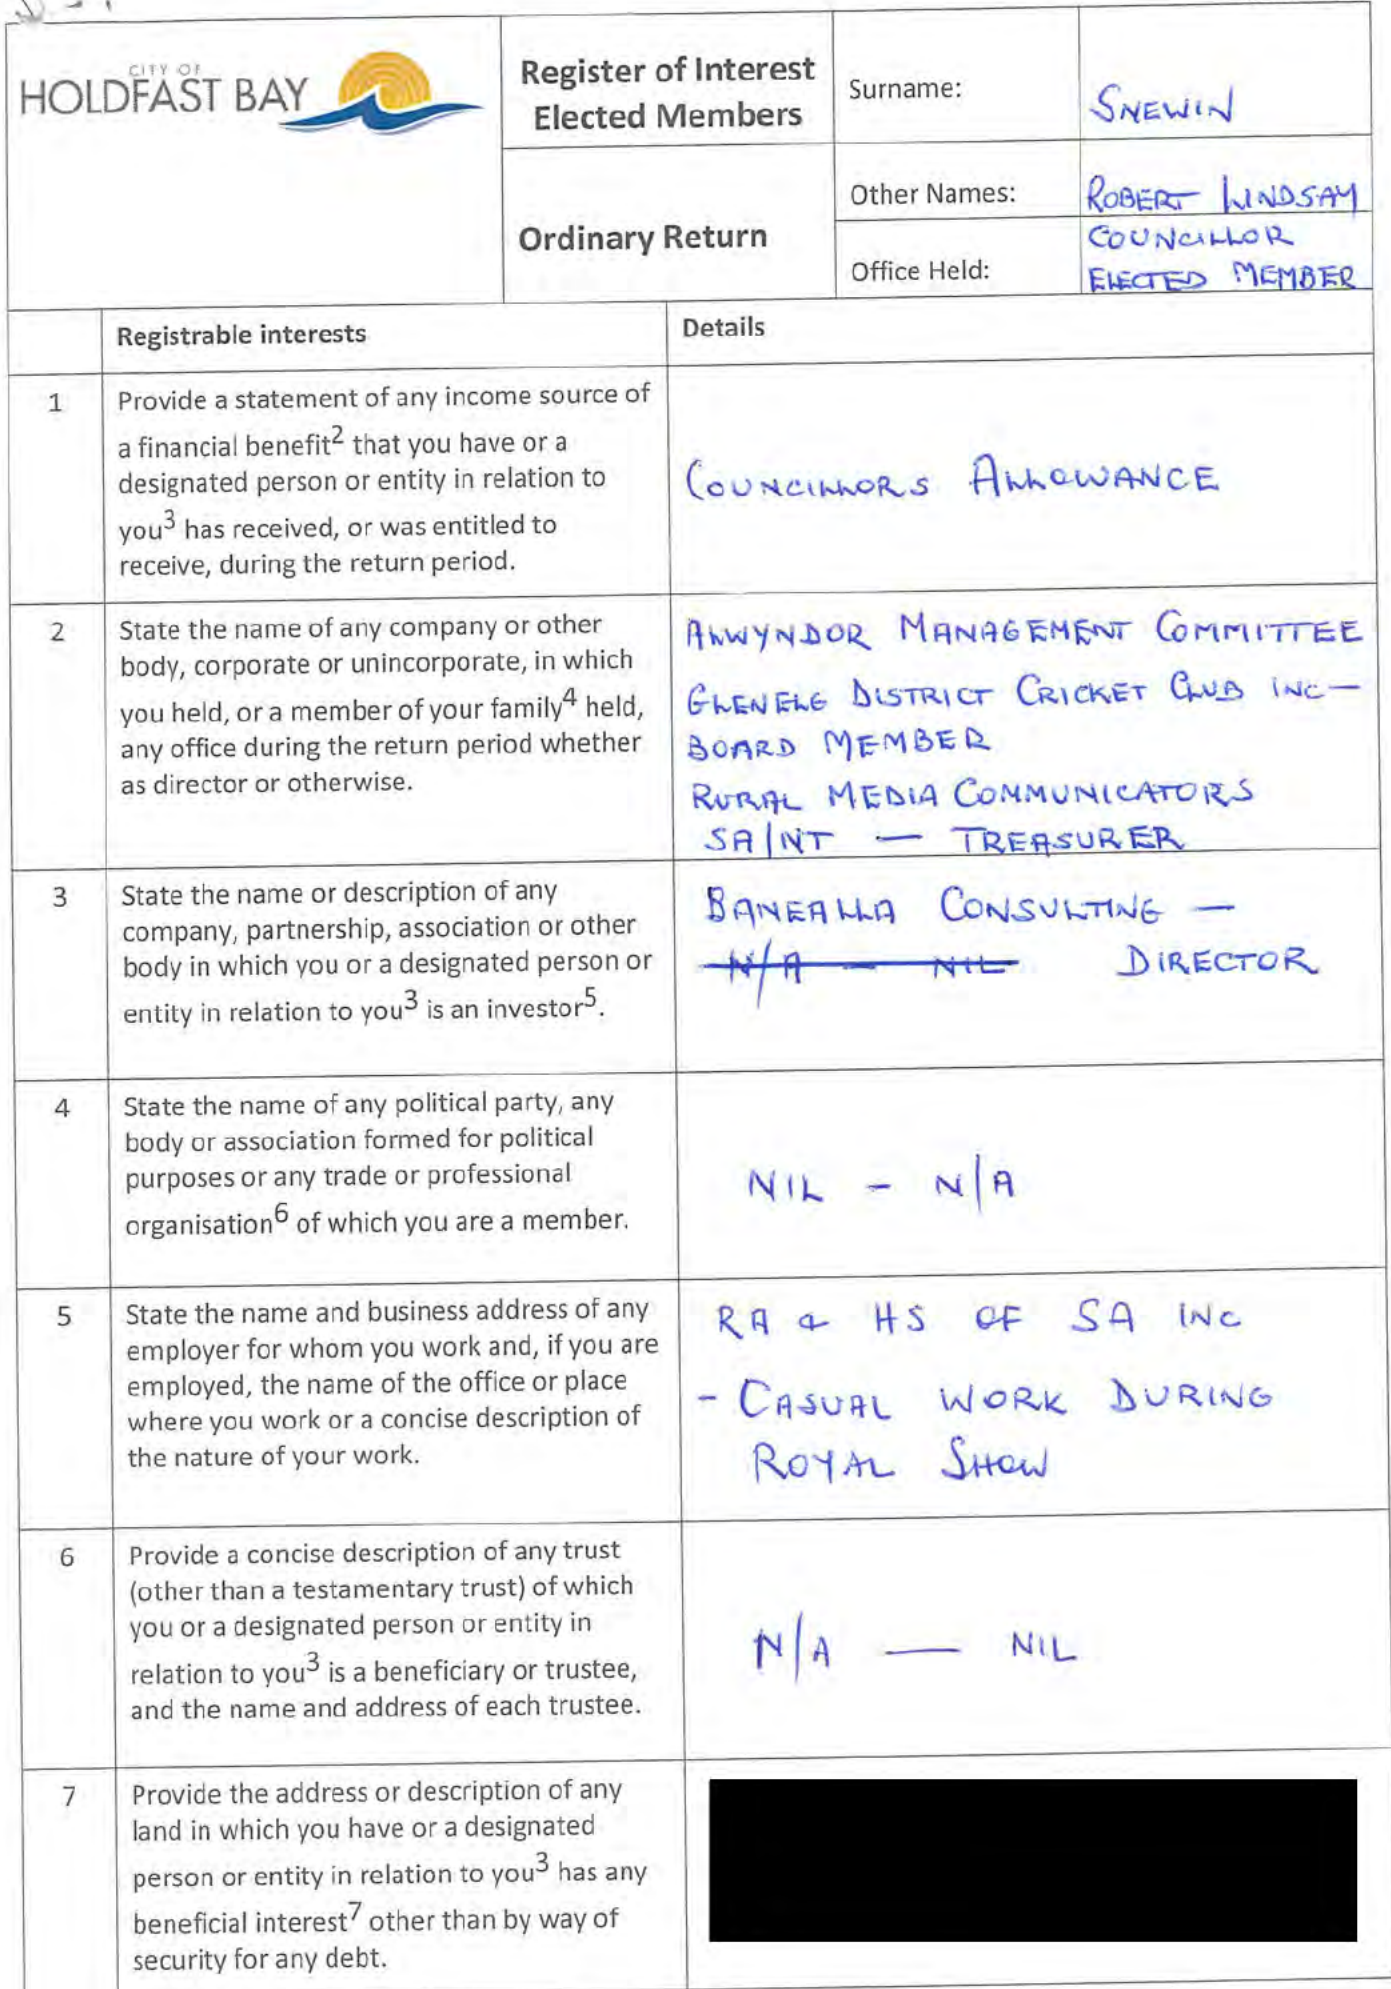 CITY OF
HOLDFAST BAY
Register of Interest
Elected Members
Surname:
SNEWIN
Ordinary Return
Other Names:
ROBERT LINDSAY
Office Held:
COUNCILLOR
ELECTED MEMBER
Registrable interests
Details
1
Provide a statement of any income source of
a financial benefit2 that you have or a
designated person or entity in relation to
you3 has received, or was entitled to
receive, during the return period.
COUNCILLORS ALLOWANCE
2
State the name of any company or other
body, corporate or unincorporate, in which
you held, or a member of your family4 held,
any office during the return period whether
as director or otherwise.
ALWYNDOR MANAGEMENT COMMITTEE
GLENELG DISTRICT CRICKET CLUB INC —
BOARD MEMBER
RURAL MEDIA COMMUNICATORS
SA/NT — TREASURER
3
State the name or description of any
company, partnership, association or other
body in which you or a designated person or
entity in relation to you3 is an investor5.
BANEALLA CONSULTING —
N/A — NIL DIRECTOR
4
State the name of any political party, any
body or association formed for political
purposes or any trade or professional
organisation6 of which you are a member.
NIL - N/A
5
State the name and business address of any
employer for whom you work and, if you are
employed, the name of the office or place
where you work or a concise description of
the nature of your work.
RA & HS OF SA INC
- CASUAL WORK DURING
ROYAL SHOW
6
Provide a concise description of any trust
(other than a testamentary trust) of which
you or a designated person or entity in
relation to you3 is a beneficiary or trustee,
and the name and address of each trustee.
N/A — NIL
7
Provide the address or description of any
land in which you have or a designated
person or entity in relation to you3 has any
beneficial interest7 other than by way of
security for any debt.